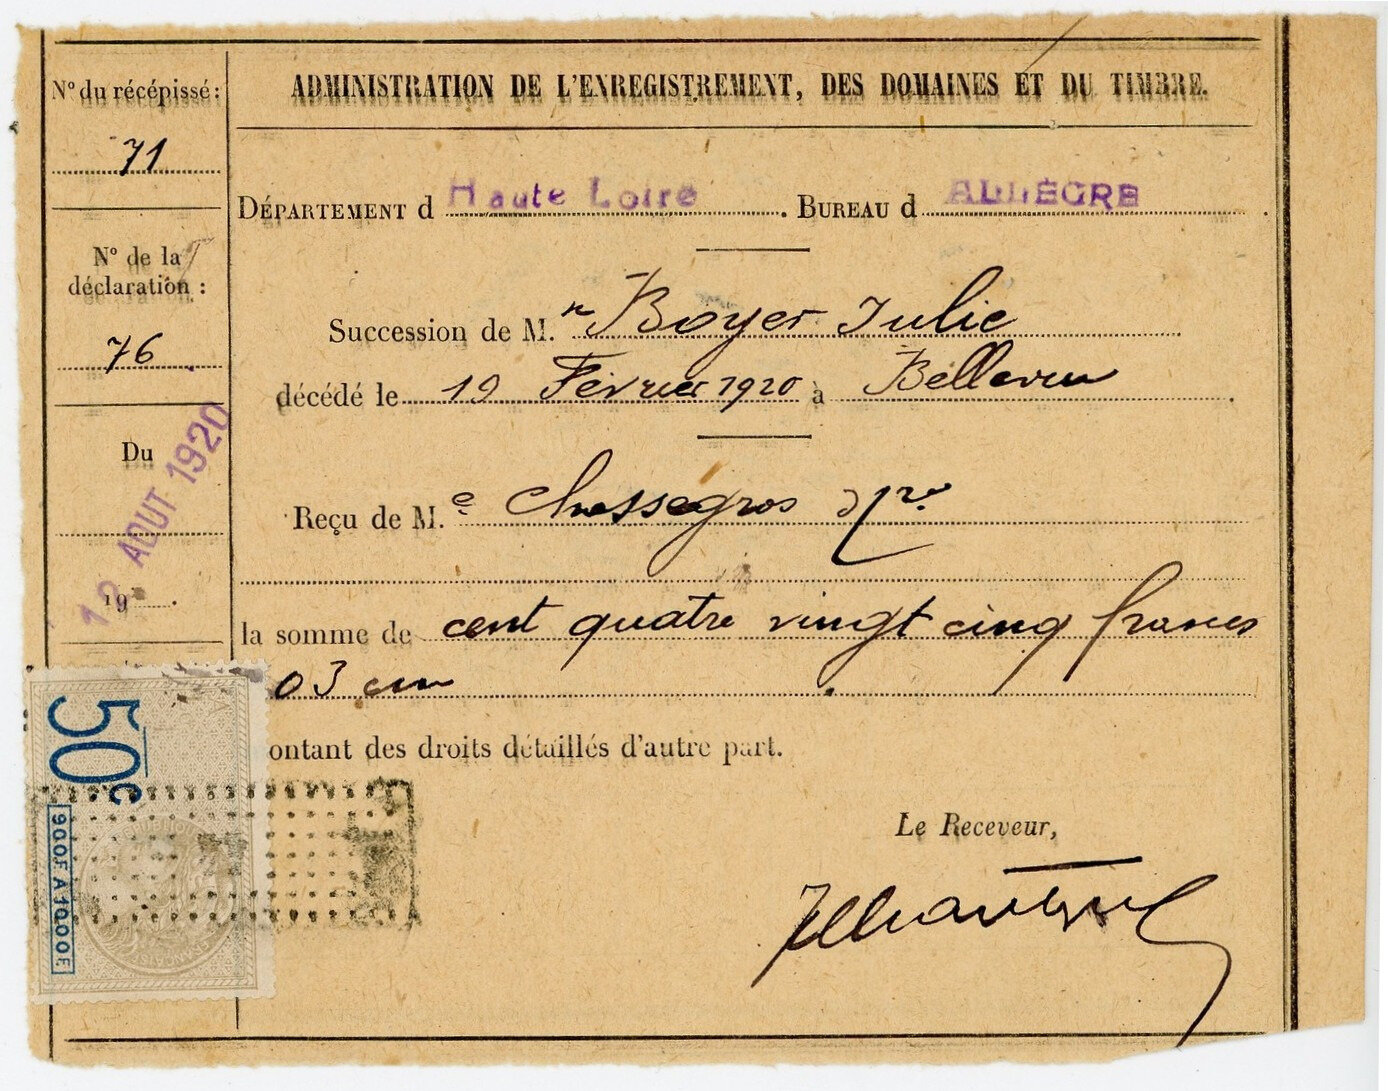 ADMINISTRATION DE L'ENREGISTREMENT, DES DOMAINES ET DU TIMBRE.
N° du récépissé:
71
N° de la
déclaration :
76
Du
12 AOUT 1920
19 .
DÉPARTEMENT d Haute Loire. BUREAU d ALLÈGRE.
Succession de M. Boyer Julie
décédé le 19 Février 1920 à Bellevue.
Reçu de M.e Chassegros
la somme de cent quatre vingt cinq francs
03 cm
ontant des droits détaillés d'autre part.
Le Receveur,
50c
900F A 1000F